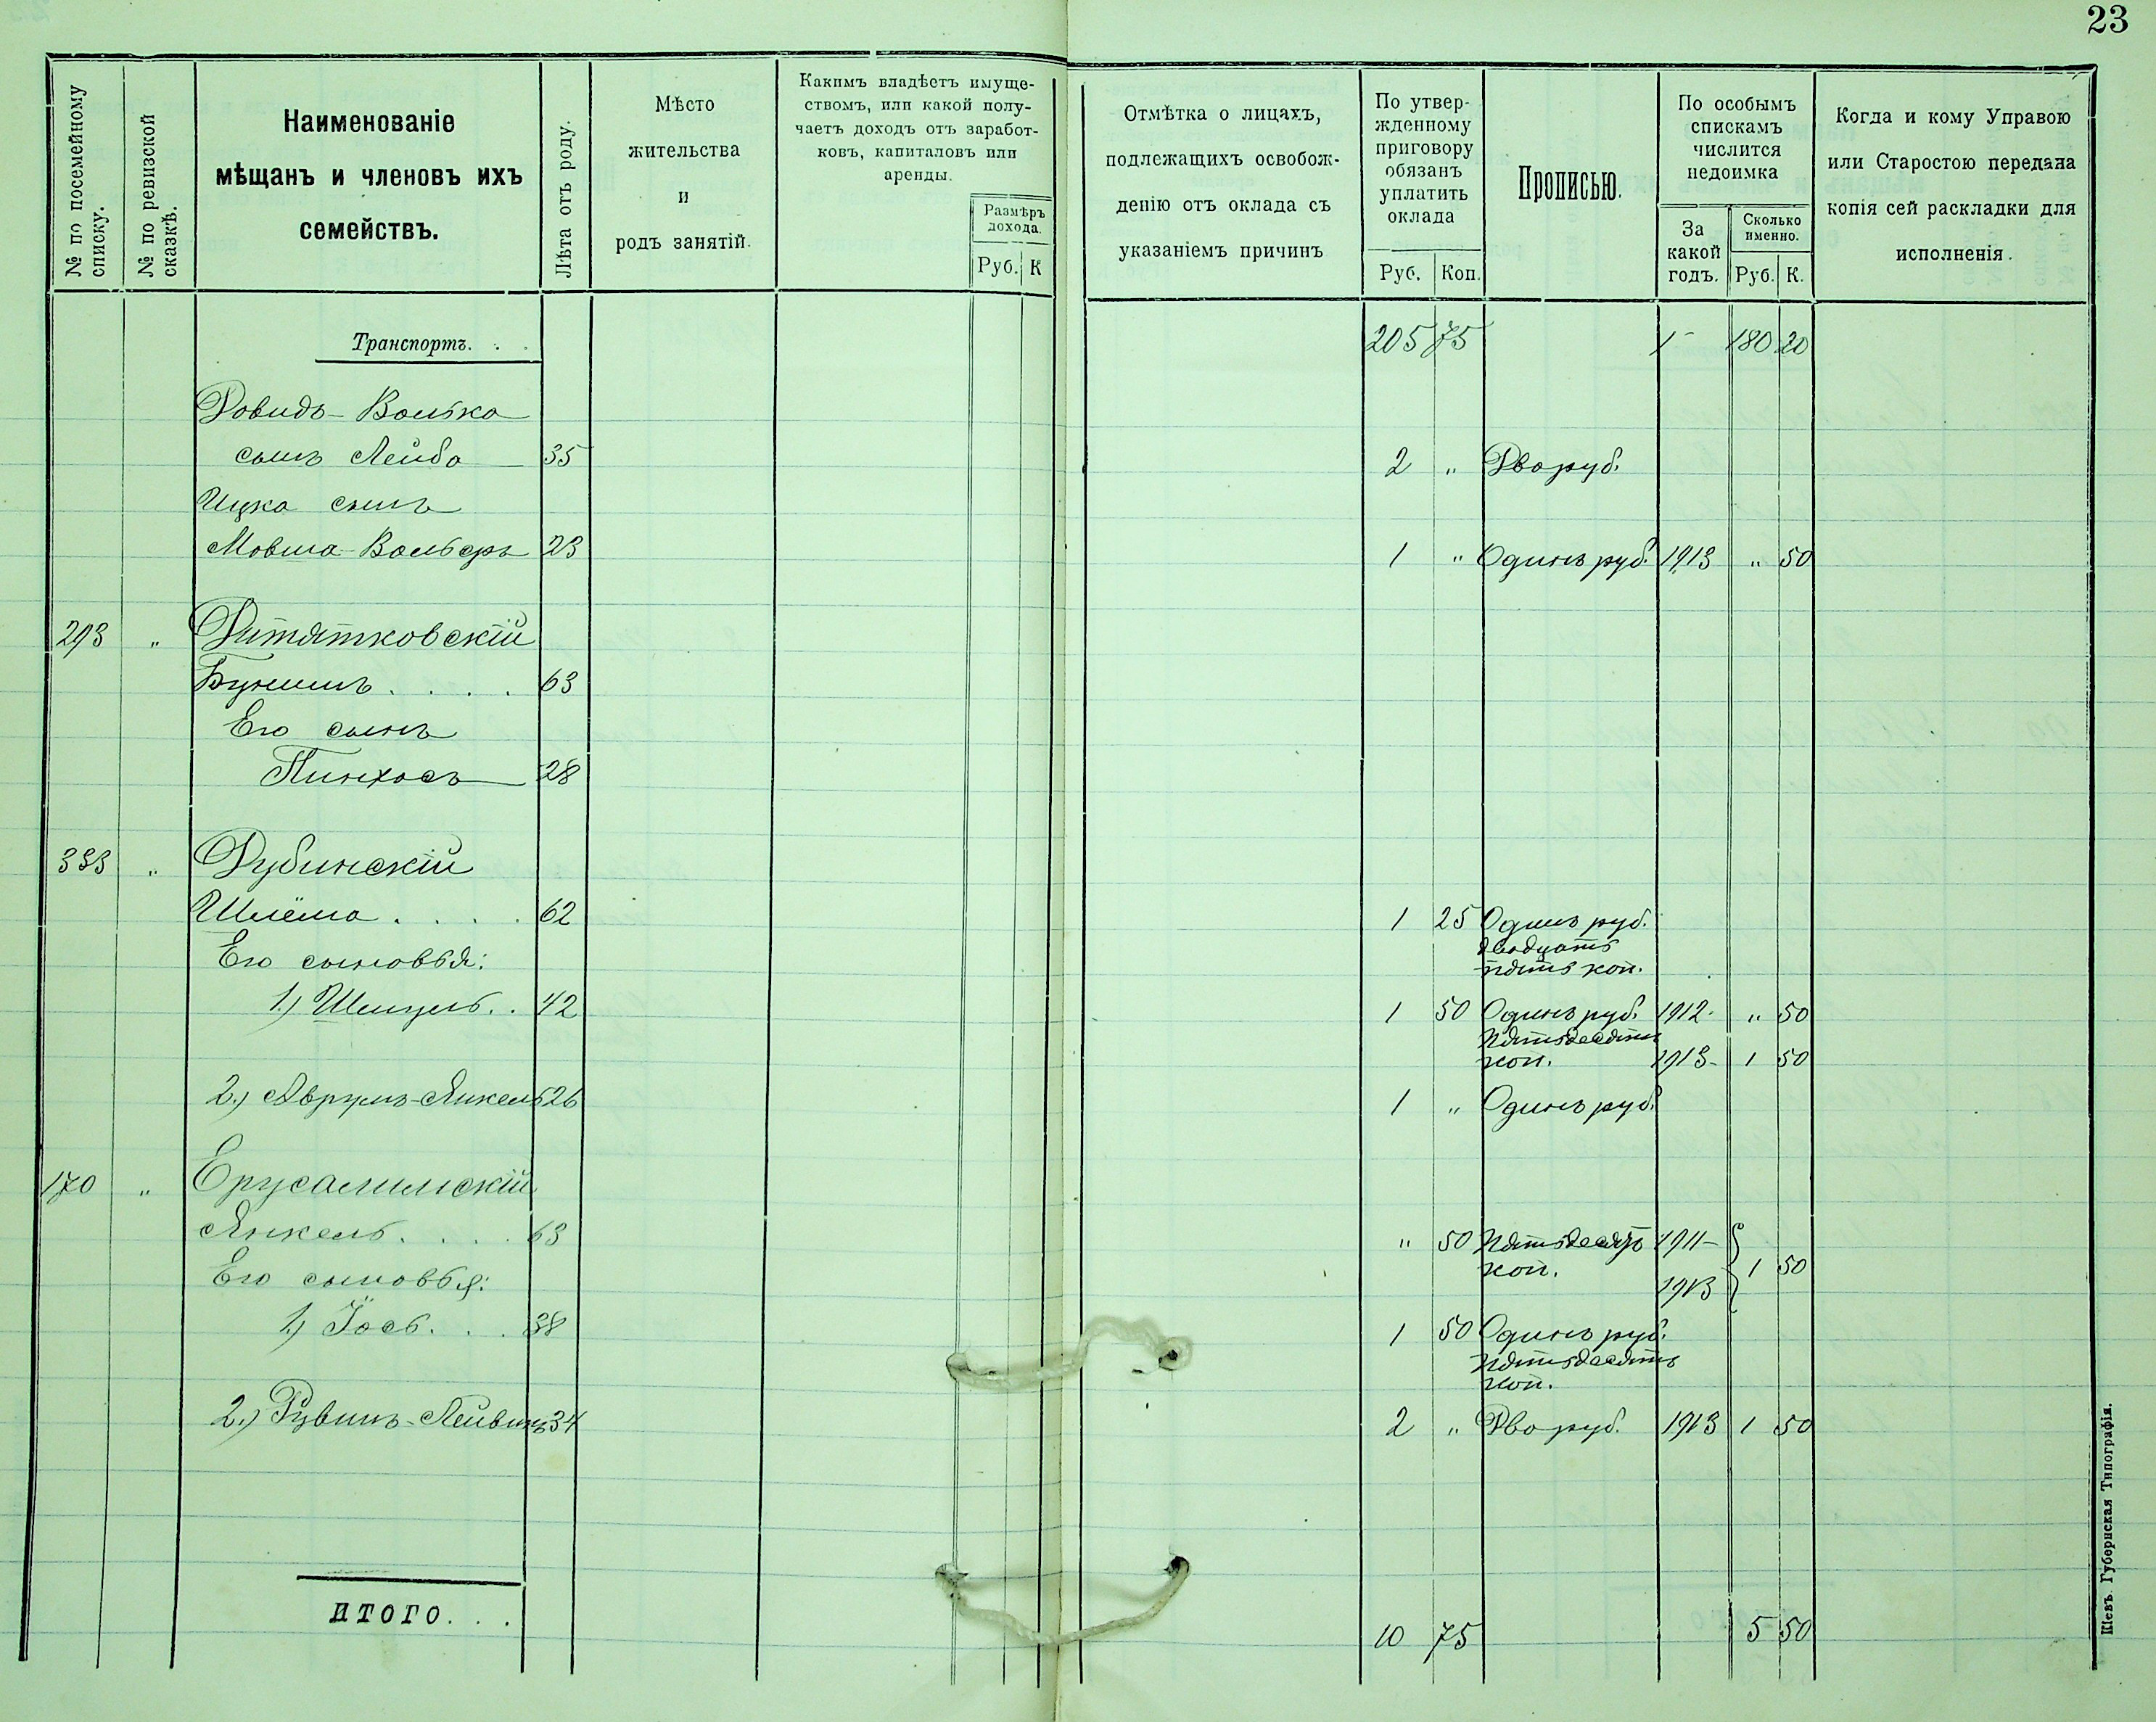 23
№ по посемейному списку.
№ по ревизской сказкѣ.
Наименованіе
мѣщанъ и членовъ ихъ
семействъ.
Лѣта отъ роду.
Мѣсто
жительства
и
родъ занятій.
Какимъ владѣетъ имуще-
ствомъ, или какой полу-
чаетъ доходъ отъ заработ-
ковъ, капиталовъ или
аренды.
Размѣръ
дохода.
Руб. К
Отмѣтка о лицахъ,
подлежащихъ освобож-
денію отъ оклада съ
указаніемъ причинъ
По утвер-
жденному
приговору
обязанъ
уплатить
оклада
Руб. Коп.
Прописью.
По особымъ
спискамъ
числится
недоимка
За
какой
годъ.
Сколько
именно.
Руб. К.
Когда и кому Управою
или Старостою передана
копія сей раскладки для
исполненія.
Транспортъ. . . 205 75 180 20
Довидъ-Волько
сынъ Лейба 35 2 " Два руб.
Ицка сынъ
Мовша-Вольфъ 23 1 " Одинъ руб. 1913 " 50
293 " Дитятковскій
Бунимъ . . . . 63
Его сынъ
Пинхосъ 28
333 " Дубинскій
Шлёма . . . . 62 1 25 Одинъ руб.
двадцать
пять коп.
Его сыновья:
1.) Шенцель . . 42 1 50 Одинъ руб. 1912. " 50
пятьдесятъ
коп. 1913- 1 50
2.) Аврумъ-Янкель 26 1 " Одинъ руб.
170 " Ерусалимскій
Янкель. . . . 63 " 50 Пятьдесятъ 1911-
коп. 1913 1 50
Его сыновья:
1.) Іось. . . 38 1 50 Одинъ руб.
пятьдесятъ
коп.
2.) Рувинъ-Лейвикъ 34 2 " Два руб. 1913 1 50
ИТОГО. . . 10 75 5 50
Кіевъ. Губернская Типографія.